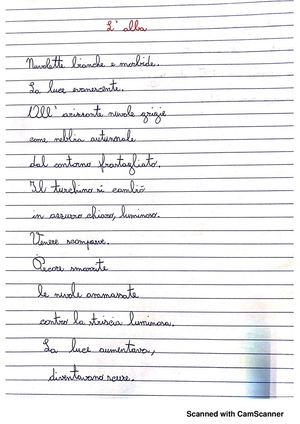 L'alba
Nuvolette bianche e morbide.
La luce evanescente.
All'orizzonte nuvole grigie
come nebbia autunnale
dal contorno frastagliato.
Il turchino si cambiò
in azzurro chiaro, luminoso.
Venere scomparve.
Pecore smarrite
le nuvole ammassate
contro la striscia luminosa.
La luce aumentava,
diventavano scure.
Scanned with CamScanner